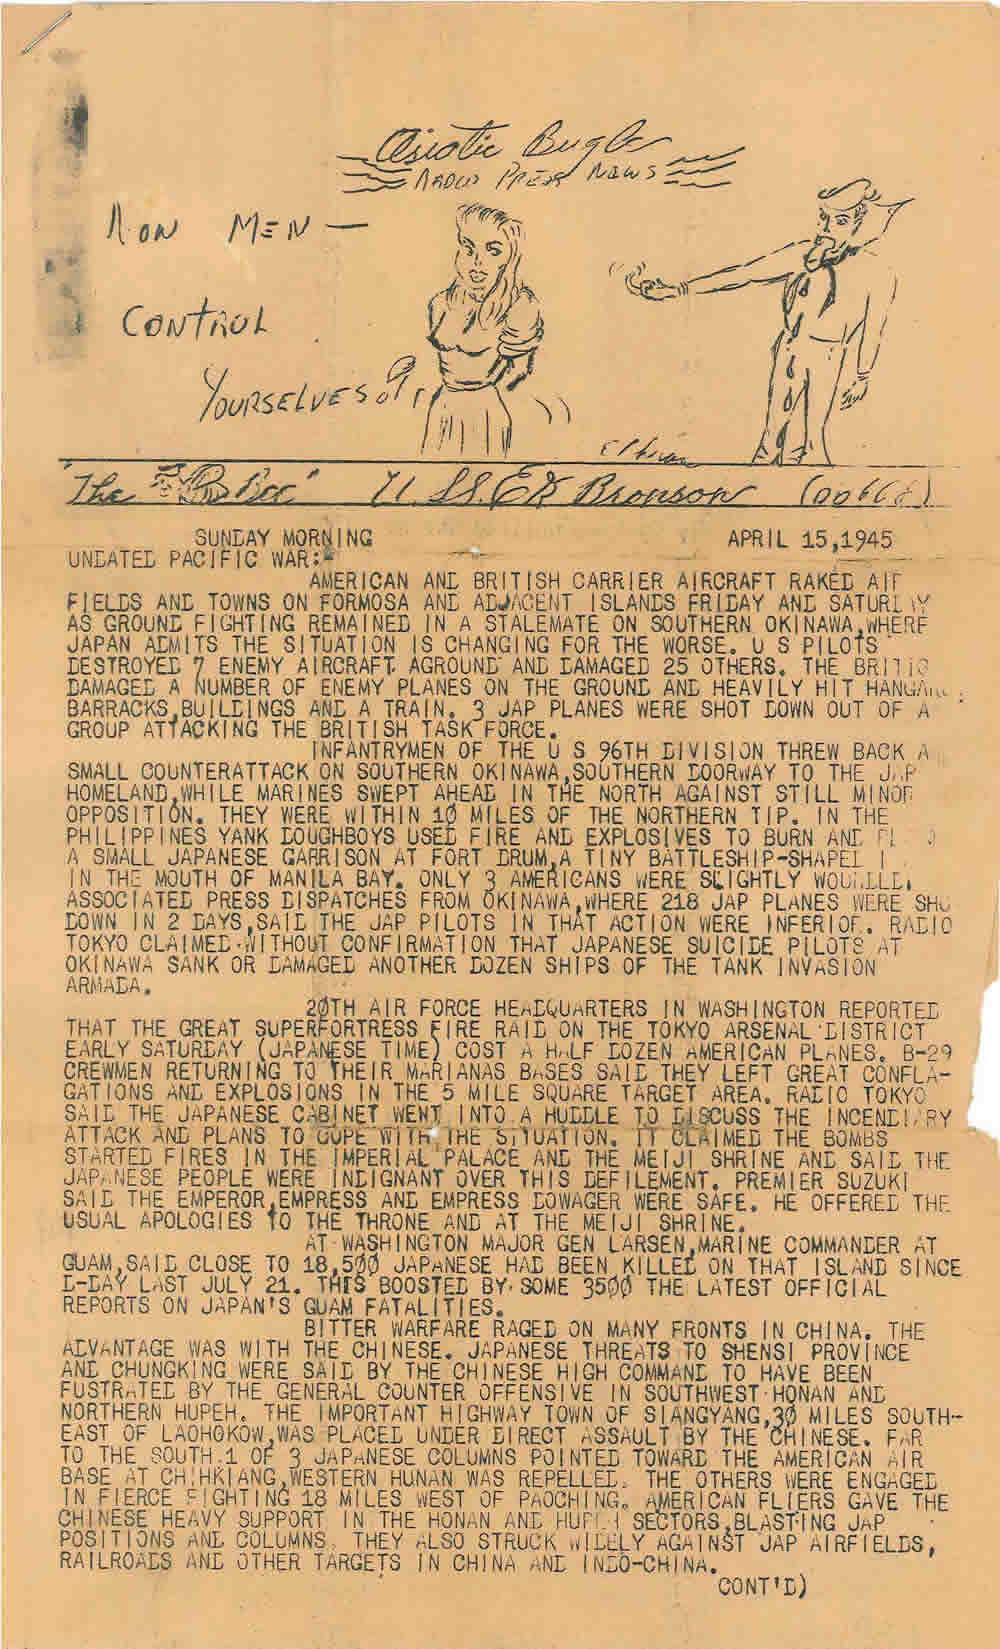 Asiatic Bugle
Radio Press News
Now MEN —
CONTROL
YOURSELVES
"The Bee" U.S.S. E K Bronson (DD668)
SUNDAY MORNING APRIL 15,1945
UNDATED PACIFIC WAR:
AMERICAN AND BRITISH CARRIER AIRCRAFT RAKED AIR
FIELDS AND TOWNS ON FORMOSA AND ADJACENT ISLANDS FRIDAY AND SATURDAY
AS GROUND FIGHTING REMAINED IN A STALEMATE ON SOUTHERN OKINAWA,WHERE
JAPAN ADMITS THE SITUATION IS CHANGING FOR THE WORSE. U S PILOTS
DESTROYED 7 ENEMY AIRCRAFT AGROUND AND DAMAGED 25 OTHERS. THE BRITIS
DAMAGED A NUMBER OF ENEMY PLANES ON THE GROUND AND HEAVILY HIT HANGARS,
BARRACKS,BUILDINGS AND A TRAIN. 3 JAP PLANES WERE SHOT DOWN OUT OF A
GROUP ATTACKING THE BRITISH TASK FORCE.
INFANTRYMEN OF THE U S 96TH DIVISION THREW BACK A
SMALL COUNTERATTACK ON SOUTHERN OKINAWA,SOUTHERN DOORWAY TO THE JAP
HOMELAND,WHILE MARINES SWEPT AHEAD IN THE NORTH AGAINST STILL MINOR
OPPOSITION. THEY WERE WITHIN 10 MILES OF THE NORTHERN TIP. IN THE
PHILIPPINES YANK DOUGHBOYS USED FIRE AND EXPLOSIVES TO BURN AND
A SMALL JAPANESE GARRISON AT FORT DRUM,A TINY BATTLESHIP-SHAPED
IN THE MOUTH OF MANILA BAY. ONLY 3 AMERICANS WERE SLIGHTLY WOUNDED.
ASSOCIATED PRESS DISPATCHES FROM OKINAWA,WHERE 218 JAP PLANES WERE SHO
DOWN IN 2 DAYS,SAID THE JAP PILOTS IN THAT ACTION WERE INFERIOR. RADIO
TOKYO CLAIMED WITHOUT CONFIRMATION THAT JAPANESE SUICIDE PILOTS AT
OKINAWA SANK OR DAMAGED ANOTHER DOZEN SHIPS OF THE TANK INVASION
ARMADA.
20TH AIR FORCE HEADQUARTERS IN WASHINGTON REPORTED
THAT THE GREAT SUPERFORTRESS FIRE RAID ON THE TOKYO ARSENAL DISTRICT
EARLY SATURDAY (JAPANESE TIME) COST A HALF DOZEN AMERICAN PLANES. B-29
CREWMEN RETURNING TO THEIR MARIANAS BASES SAID THEY LEFT GREAT CONFLA-
GATIONS AND EXPLOSIONS IN THE 5 MILE SQUARE TARGET AREA. RADIO TOKYO
SAID THE JAPANESE CABINET WENT INTO A HUDDLE TO DISCUSS THE INCENDIARY
ATTACK AND PLANS TO COPE WITH THE SITUATION. IT CLAIMED THE BOMBS
STARTED FIRES IN THE IMPERIAL PALACE AND THE MEIJI SHRINE AND SAID THE
JAPANESE PEOPLE WERE INDIGNANT OVER THIS DEFILEMENT. PREMIER SUZUKI
SAID THE EMPEROR,EMPRESS AND EMPRESS DOWAGER WERE SAFE. HE OFFERED THE
USUAL APOLOGIES TO THE THRONE AND AT THE MEIJI SHRINE.
AT WASHINGTON MAJOR GEN LARSEN,MARINE COMMANDER AT
GUAM,SAID CLOSE TO 18,500 JAPANESE HAD BEEN KILLED ON THAT ISLAND SINCE
D-DAY LAST JULY 21. THIS BOOSTED BY SOME 3500 THE LATEST OFFICIAL
REPORTS ON JAPAN'S GUAM FATALITIES.
BITTER WARFARE RAGED ON MANY FRONTS IN CHINA. THE
ADVANTAGE WAS WITH THE CHINESE. JAPANESE THREATS TO SHENSI PROVINCE
AND CHUNGKING WERE SAID BY THE CHINESE HIGH COMMAND TO HAVE BEEN
FUSTRATED BY THE GENERAL COUNTER OFFENSIVE IN SOUTHWEST HONAN AND
NORTHERN HUPEH. THE IMPORTANT HIGHWAY TOWN OF SIANGYANG,30 MILES SOUTH-
EAST OF LAOHOKOW,WAS PLACED UNDER DIRECT ASSAULT BY THE CHINESE. FAR
TO THE SOUTH 1 OF 3 JAPANESE COLUMNS POINTED TOWARD THE AMERICAN AIR
BASE AT CHIHKIANG,WESTERN HUNAN WAS REPELLED. THE OTHERS WERE ENGAGED
IN FIERCE FIGHTING 18 MILES WEST OF PAOCHING. AMERICAN FLIERS GAVE THE
CHINESE HEAVY SUPPORT IN THE HONAN AND HUPEH SECTORS,BLASTING JAP
POSITIONS AND COLUMNS. THEY ALSO STRUCK WIDELY AGAINST JAP AIRFIELDS,
RAILROADS AND OTHER TARGETS IN CHINA AND INDO-CHINA.
CONT'D)